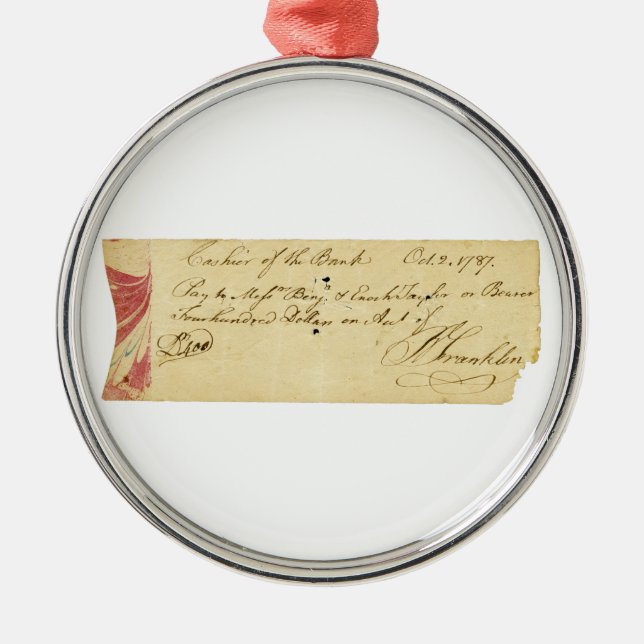 Cashier of the Bank Oct. 2. 1787.
Pay to Messrs Benja & Enoch Taylor or Bearer
Four hundred Dollars on Acct of
Ds 400 B Franklin